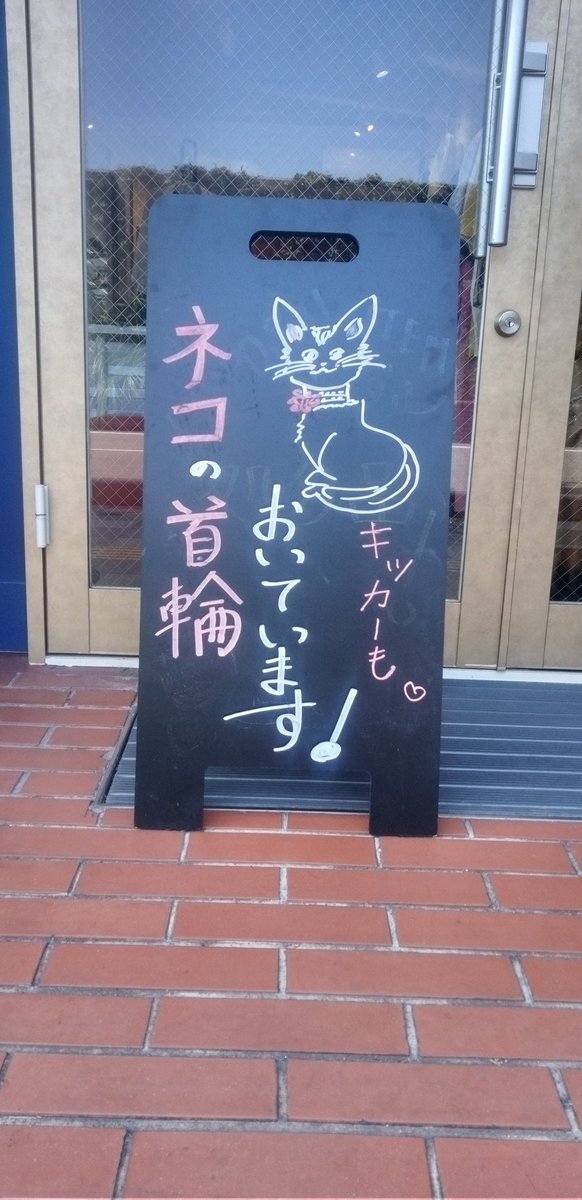 ネコの首輪
おいています!
キッカーも♡